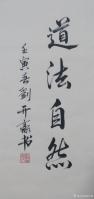 道法自然
壬寅春劉开豪书